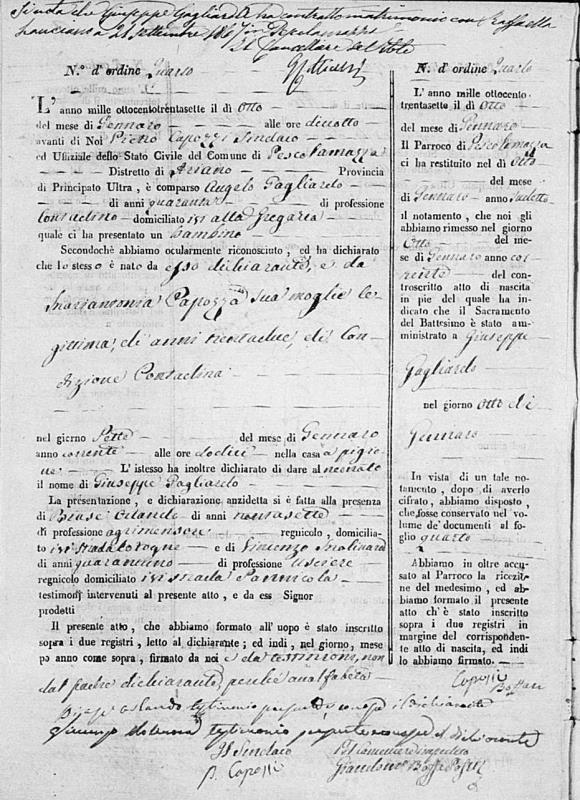 Giuseppe Gagliardi ha contratto matrimonio con Raffaella
21 settembre in Pescolamazza
Il Cancelliere del
N.º d'ordine Quarto
L'anno mille ottocentotrentasette il dì Otto
del mese di Gennaro alle ore diciotto
avanti di Noi Pietro Capozzi Sindaco
ed Uffiziale dello Stato Civile del Comune di Pescolamazza
Distretto di Ariano Provincia
di Principato Ultra, è comparso Angelo Gagliardo
di anni quaranta di professione
Contadino domiciliato ivi alla Gregaria
quale ci ha presentato un bambino
Secondochè abbiamo ocularmente riconosciuto, ed ha dichiarato
che lo stesso è nato da esso dichiarante, e da
Mariantonia Capozza sua moglie le-
gittima, di anni trentadue, di con-
dizione Contadina
nel giorno Sette del mese di Gennaro
anno corrente alle ore dodici nella casa a pigio-
ne L'istesso ha inoltre dichiarato di dare al neonato
il nome di Giuseppe Gagliardo
La presentazione, e dichiarazione anzidetta si è fatta alla presenza
di Biase Orlando di anni
di professione agrimensore regnicolo, domicilia-
to ivi strada e di Vincenzo Molinaro
di anni quarantuno di professione usciere
regnicolo domiciliato ivi strada Pannicola
testimonj intervenuti al presente atto, e da ess Signor
prodotti
Il presente atto, che abbiamo formato all'uopo è stato inscritto
sopra i due registri, letto al dichiarante; ed indi, nel giorno, mese
ed anno come sopra, firmato da noi e da testimonj, non
dal padre dichiarante, perchè analfabeta
Biase Orlando testimonio conosce il dichiarante
Vincenzo testimonio conosce il dichiarante
Il Sindaco
P. Capozzi
Il Cancelliere
N.º d'ordine Quarto
L'anno mille ottocento
trentasette il dì Otto
del mese di Gennaro
Il Parroco di Pescolamazza
ci ha restituito nel dì Otto
del mese
di Gennaro anno sudetto
il notamento, che noi gli
abbiamo rimesso nel giorno
Otto del me-
se di Gennaro anno cor-
rente del con-
troscritto atto di nascita
in piè del quale ha in-
dicato che il Sacramento
del Battesimo è stato am-
ministrato a Giuseppe
Gagliardo
nel giorno Otto di
Gennaro
In vista di un tale no-
tamento, dopo di averlo
cifrato, abbiamo disposto,
che fosse conservato nel vo-
lume de' documenti al fo-
glio quarto
Abbiamo in oltre accu-
sato al Parroco la ricezio-
ne del medesimo, ed ab-
biamo formato il presente
atto ch'è stato inscritto
sopra i due registri in
margine del corrisponden-
te atto di nascita, ed indi
lo abbiamo firmato.
Capozzi